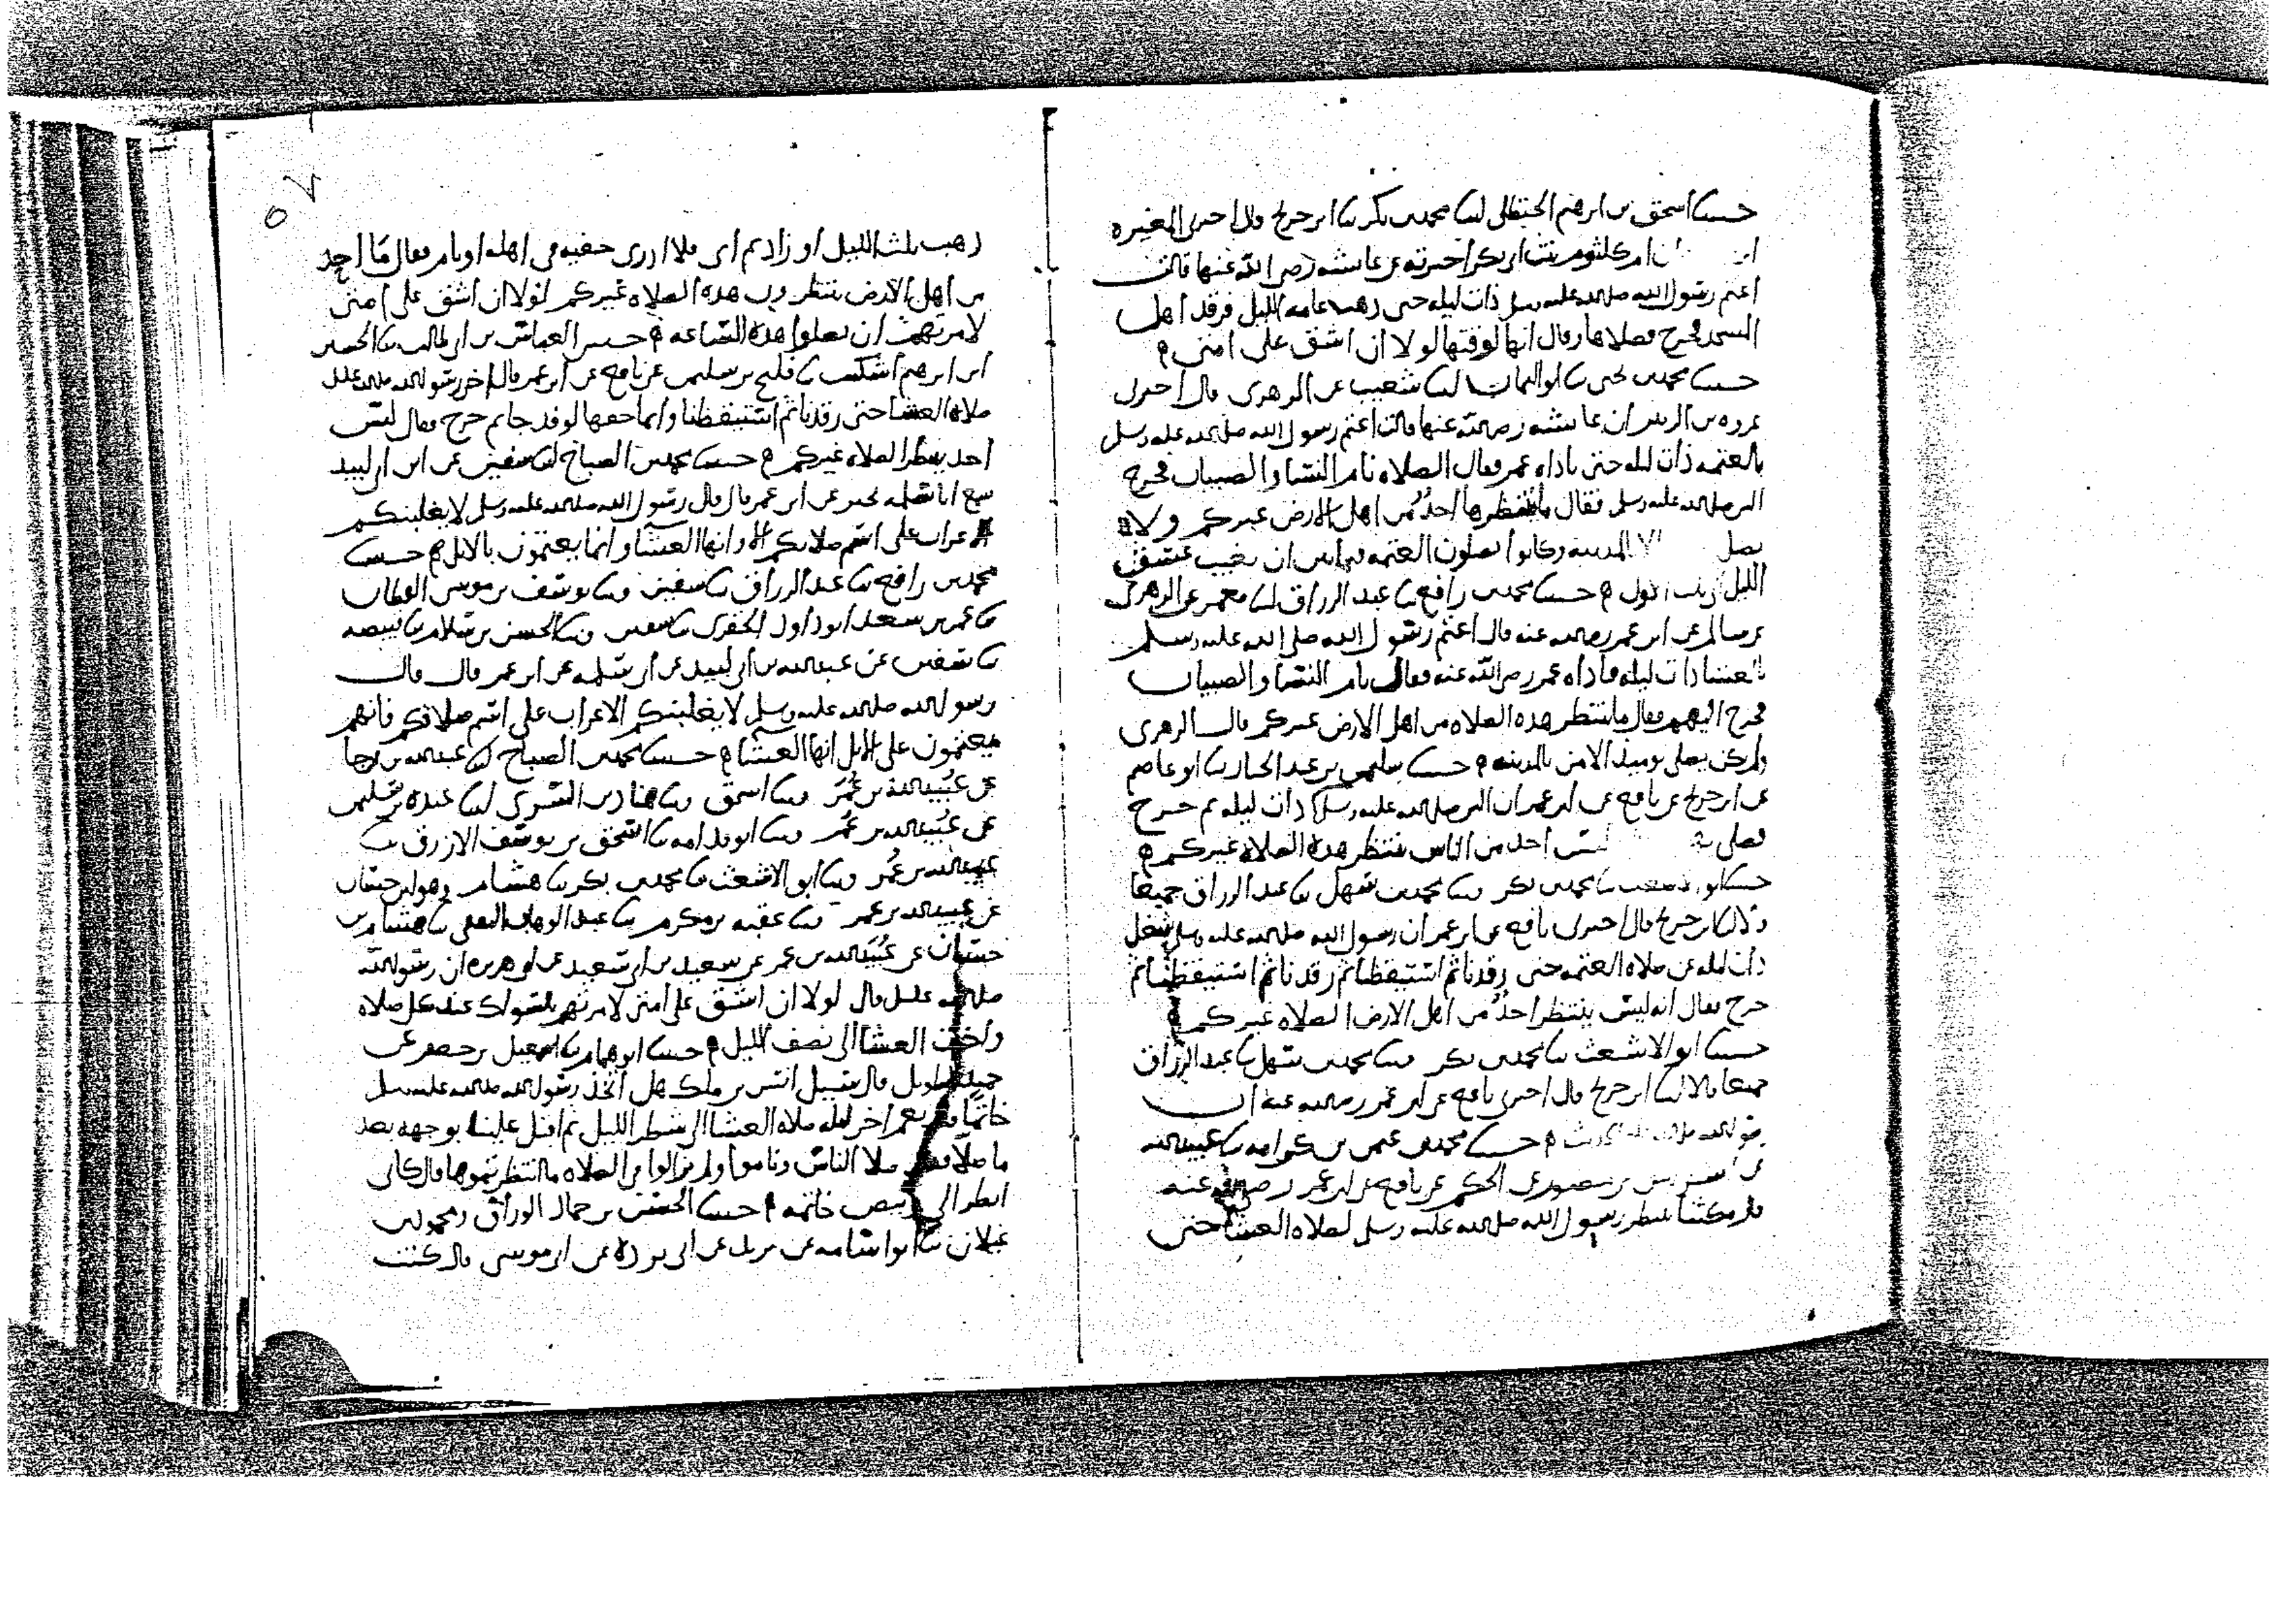 حدثنا اسحق بن ابرهيم الحنظلي ابنا محمد بن بكر ثنا ابن جريج قال اخبرني المغيره
ابن ام كلثوم بنت ابي بكر اخبرته عن عايشه رضي الله عنها قالت
اعتم رسول الله صلى الله عليه وسلم ذات ليله حتى ذهب عامه الليل فرقد اهل
المسجد فخرج فصلاها وقال انها لوقتها لولا ان اشق على امتي
حدثنا محمد بن يحيى ثنا ابو اليمان ابنا شعيب عن الزهري قال اخبرني
عروه بن الزبير ان عايشه رضي الله عنها قالت اعتم رسول الله صلى الله عليه وسلم
بالعتمه ذات ليله حتى ناداه عمر فقال الصلاه نام النسا والصبيان فخرج
النبي صلى الله عليه وسلم فقال ما ينتظرها احد من اهل الارض غيركم ولا
يصل الا بالمدينه وكانوا يصلون العتمه فيما بين ان يغيب غسق
الليل الاول حدثنا محمد بن رافع ثنا عبد الرزاق ابنا معمر عن الزهري
عن سالم عن ابن عمر رضي الله عنه قال اعتم رسول الله صلى الله عليه وسلم
بالعشا ذات ليله فناداه عمر رضي الله عنه فقال نام النسا والصبيان
فخرج اليهم فقال ما ينتظر هذه الصلاه من اهل الارض غيركم قال الزهري
ولم يكن يصلي يوميذ الا من بالمدينه حدثنا سليمن بن عبد الجبار ثنا ابو عاصم
عن ابن جريج عن نافع عن ابن عمر ان النبي صلى الله عليه وسلم ذات ليله ثم خرج
فصلى ليس احد من الناس ينتظر هذه الصلاه غيركم
حدثنا ابو الاشعث ثنا محمد بن بكر وثنا محمد بن سهل ثنا عبد الرزاق جميعا
قالا ثنا ابن جريج قال اخبرني نافع عن ابن عمر ان رسول الله صلى الله عليه وسلم شغل
ذات ليله عن صلاه العتمه حتى رقدنا ثم استيقظنا ثم رقدنا ثم استيقظنا ثم
خرج فقال انه ليس ينتظر احد من اهل الارض الصلاه غيركم
حدثنا ابو الاشعث ثنا محمد بن بكر وثنا محمد بن سهل ثنا عبد الرزاق
جميعا قالا ابنا ابن جريج قال اخبرني نافع عن ابن عمر رضي الله عنه ان
رسول الله صلى الله الحديث حدثنا محمد بن عثمن بن كرامه ثنا عبيد الله
عن منصور عن الحكم عن نافع عن ابن عمر رضي الله عنه
قال مكثنا ننتظر رسول الله صلى الله عليه وسلم لصلاه العشا حتى
ذهب ثلث الليل او زاد ثم اتى فلا ادري خفيه في اهله او نام فقال ما احد
من اهل الارض ينتظرون هذه الصلاه غيركم لولا ان اشق على امتي
لامرتهم ان يصلوا هذه الساعه حدثنا العباس بن ابي طالب ثنا الحسين
ابن ابرهيم اشكيب ثنا فليح بن سليمن عن نافع عن ابن عمر قال اخر رسول الله صلى الله عليه
صلاه العشا حتى رقدنا ثم استيقظنا وانما حبسها لوفد جا ثم خرج فقال ليس
احد ينتظر الصلاه غيركم حدثنا محمد بن الصباح ابنا سفين عن ابن ابي لبيد
سمع ابا سلمه يخبر عن ابن عمر قال قال رسول الله صلى الله عليه وسلم لا يغلبنكم
الاعراب على اسم صلاتكم الا وانها العشا وانما يعتمون بالابل حدثنا
محمد بن رافع ثنا عبد الرزاق ثنا سفين وثنا يوسف بن موسى القطان
ثنا عمر بن سعد ابو داود الحفري ثنا سفين وثنا الحسن بن سلام ثنا قبيصه
ثنا سفين عن عبد الله بن ابي لبيد عن ابي سلمه عن ابن عمر قال قال
رسول الله صلى الله عليه وسلم لا يغلبنكم الاعراب على اسم صلاتكم فانهم
يعتمون على الابل انها العشا حدثنا محمد بن الصباح ابنا عبد الله بن رجا
عن عبيد الله بن عمر وثنا اسحق وثنا هناد بن السري ابنا عبده بن سليمن
عن عبيد الله بن عمر وثنا ابو قدامه ثنا اسحق بن يوسف الازرق ثنا
عبيد الله بن عمر وثنا ابو الاشعث ثنا محمد بن بكر ثنا هشام وهو ابن حسان
عن عبيد الله بن عمر وثنا عقبه بن مكرم ثنا عبد الوهاب الثقفي ثنا هشام بن
حسان عن عبيد الله بن عمر عن سعيد بن ابي سعيد عن ابي هريره ان رسول الله
صلى الله عليه قال لولا ان اشق على امتي لامرتهم بالسواك عند كل صلاه
واخرت العشا الى نصف الليل حدثنا ابو همام ثنا اسمعيل بن جعفر عن
حميد الطويل قال سيل انس بن ملك هل اتخذ رسول الله صلى الله عليه وسلم
خاتما قال نعم اخر ليله صلاه العشا الى شطر الليل ثم اقبل علينا بوجهه بعد
ما صلا فقال صلا الناس وناموا ولم تزالوا في الصلاه ما انتظرتموها قال كاني
انظر الى وبيص خاتمه حدثنا الحسن بن حماد الوراق ومحمود بن
غيلان ثنا ابو اسامه عن بريد عن ابي برده عن ابي موسى قال كنت